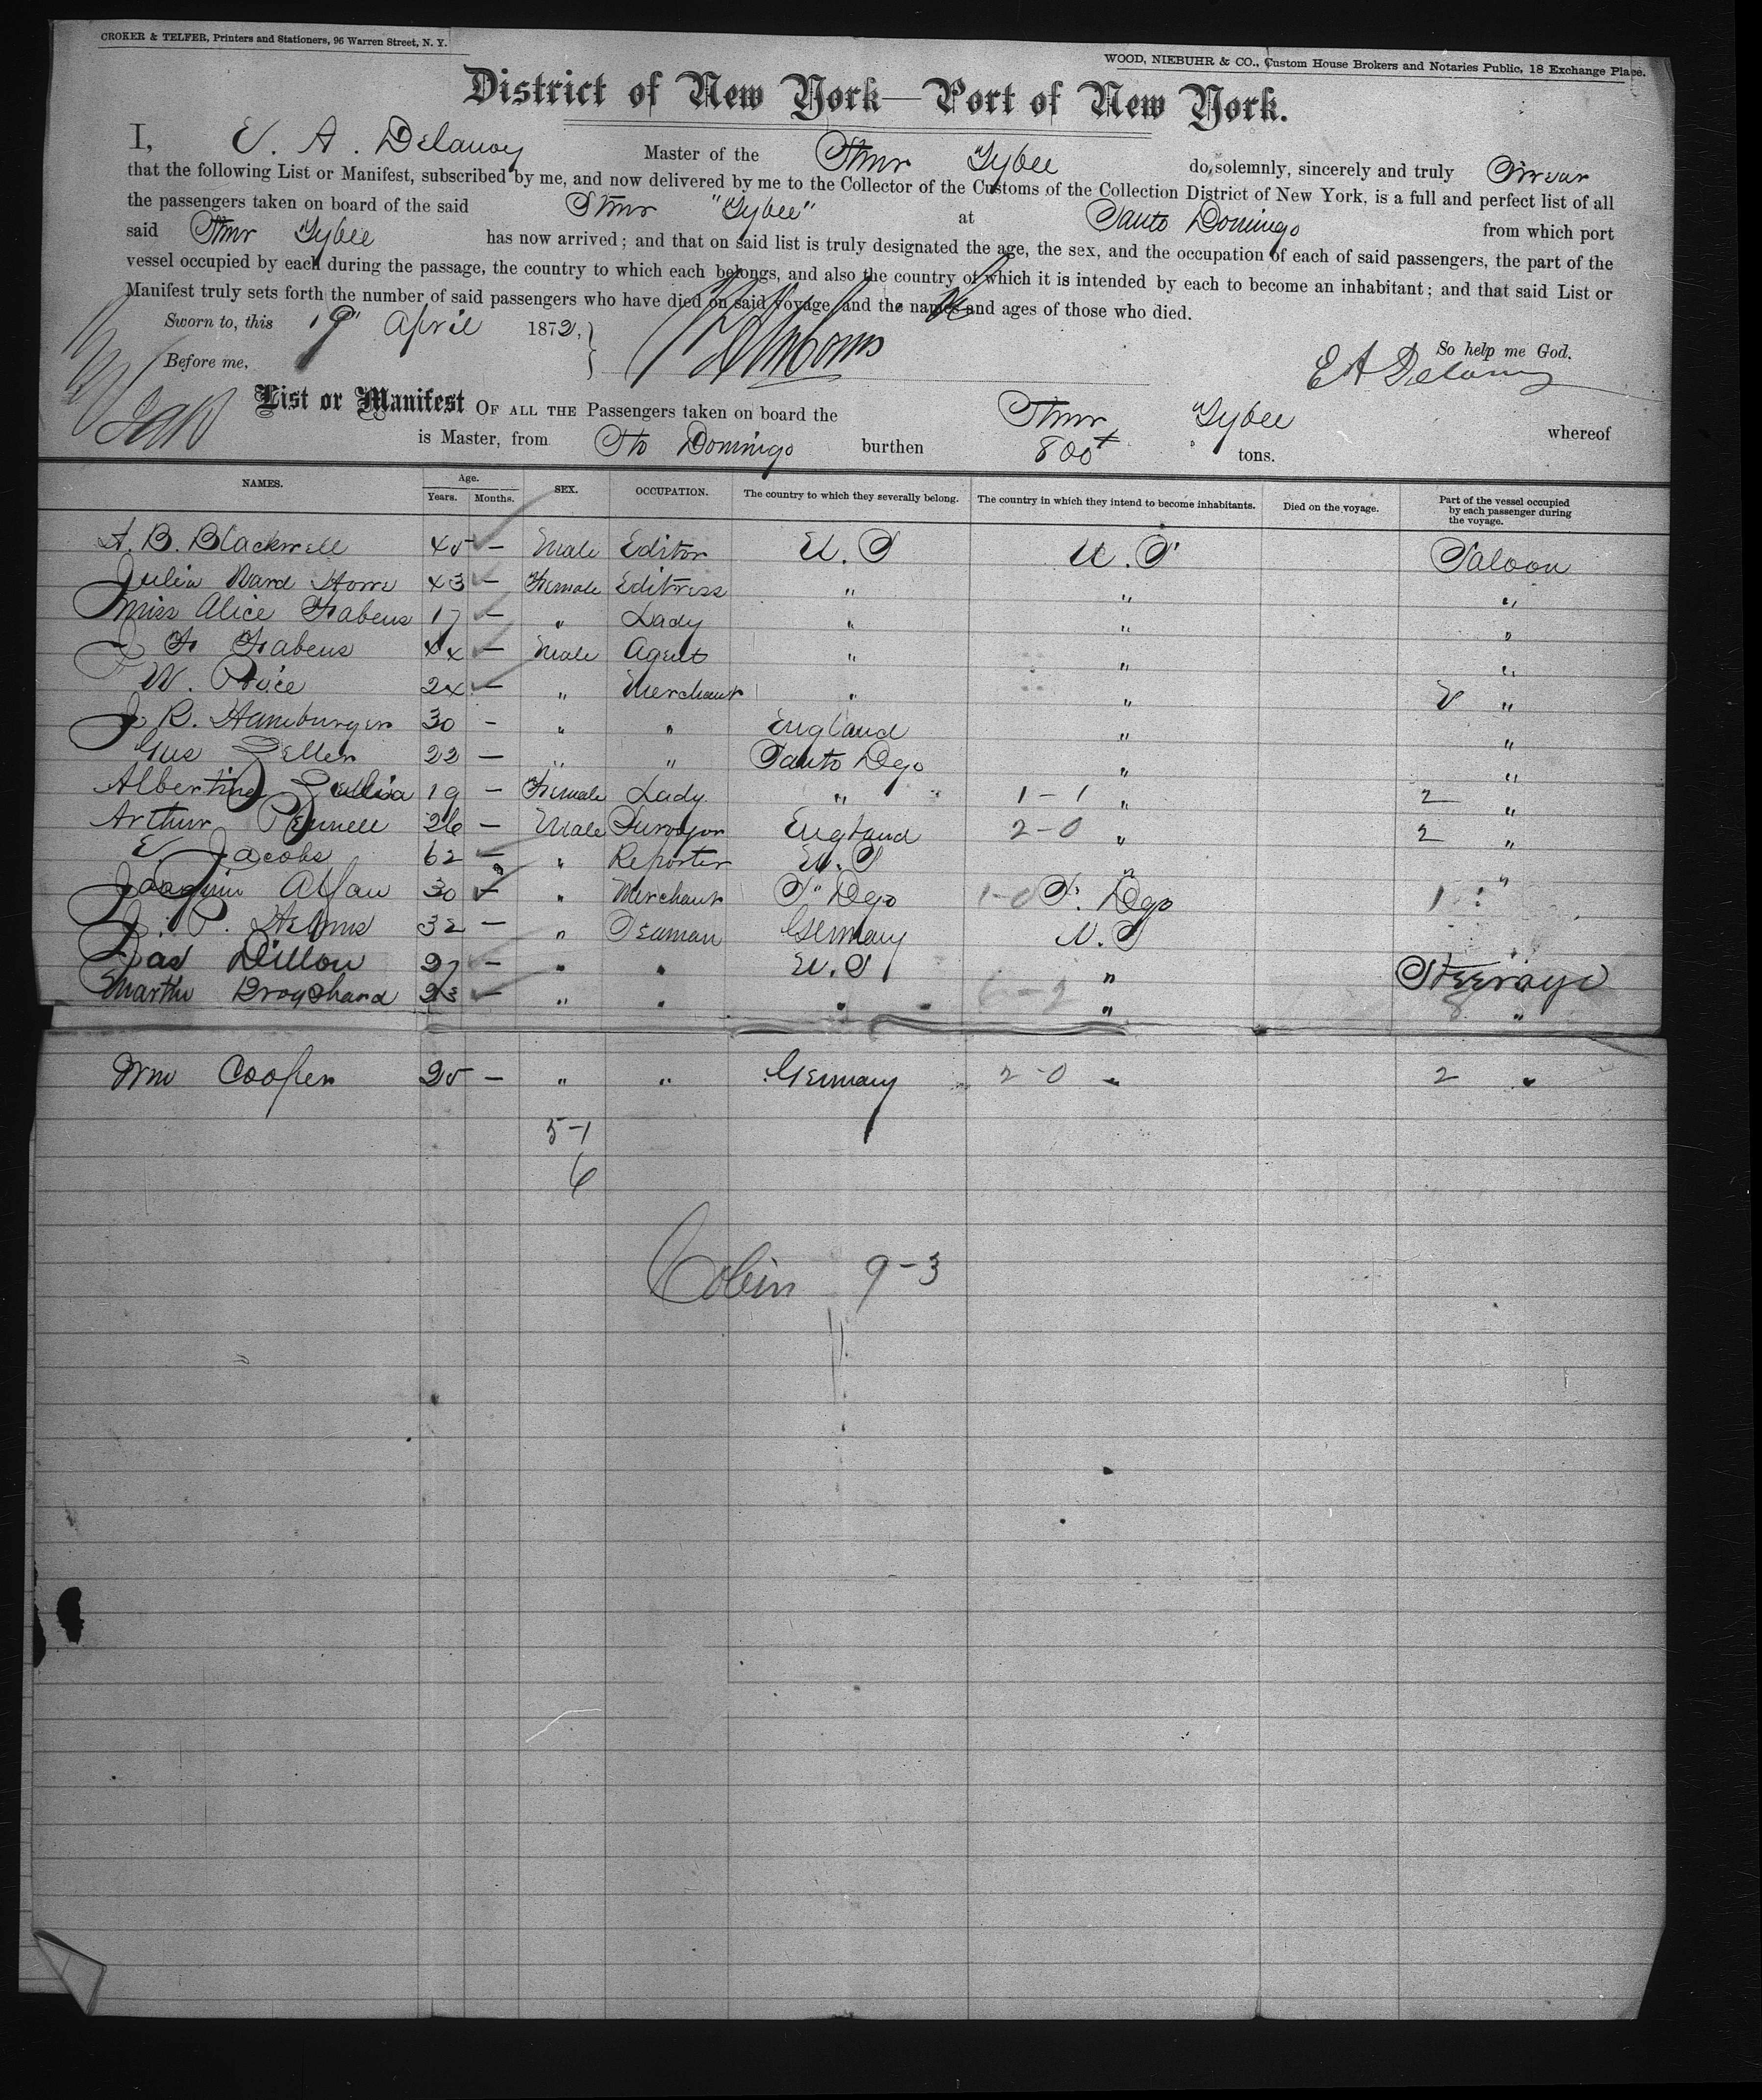 CROKER & TELFER, Printers and Stationers, 96 Warren Street, N. Y.
WOOD, NIEBUHR & CO., Custom House Brokers and Notaries Public, 18 Exchange Place.
District of New York—Port of New York.
I, E. A. Delanoy Master of the Stmr Tybee do, solemnly, sincerely and truly Swear
that the following List or Manifest, subscribed by me, and now delivered by me to the Collector of the Customs of the Collection District of New York, is a full and perfect list of all
the passengers taken on board of the said Stmr "Tybee" at Santo Domingo from which port
said Stmr Tybee has now arrived; and that on said list is truly designated the age, the sex, and the occupation of each of said passengers, the part of the
vessel occupied by each during the passage, the country to which each belongs, and also the country of which it is intended by each to become an inhabitant; and that said List or
Manifest truly sets forth the number of said passengers who have died on said voyage, and the names and ages of those who died.
Sworn to, this 19" April 1872,
So help me God,
Before me, E A Delanoy
List or Manifest OF ALL THE Passengers taken on board the Stmr Tybee whereof
is Master, from Sto Domingo burthen 800 tons.
NAMES. Age. Years. Months. SEX. OCCUPATION. The country to which they severally belong. The country in which they intend to become inhabitants. Died on the voyage. Part of the vessel occupied by each passenger during the voyage.
A. B. Blackwell 45 — Male Editor U. S U. S Saloon
Julia Ward Howe 43 — Female Editress " " "
Miss Alice Fabens 17 — " Lady " " "
J F Fabens 44 — Male Agent " " "
W. Price 24 — " Merchant " " "
J R. Hamburger 30 - " " England " "
Gus Zeller 22 — " " Santo Dgo " "
Albertine 19 - Female Lady " 1-1 " 2 "
Arthur Pennell 26 - Male Surveyor England 2-0 " 2 "
E Jacobs 62 — " Reporter U. S " "
Joaquin Alfau 30 — " Merchant Sº Dgo 1-0 Sº Dgo 1 "
J. P. Helms 32 — " Seaman Germany U. S
Jas Dillon 27 — " " U. S " Steerage
Martin 23 — " " " " "
Wm Cooper 25 — " " Germany 2-0 " 2 "
5-1
6
Cabin 9-3